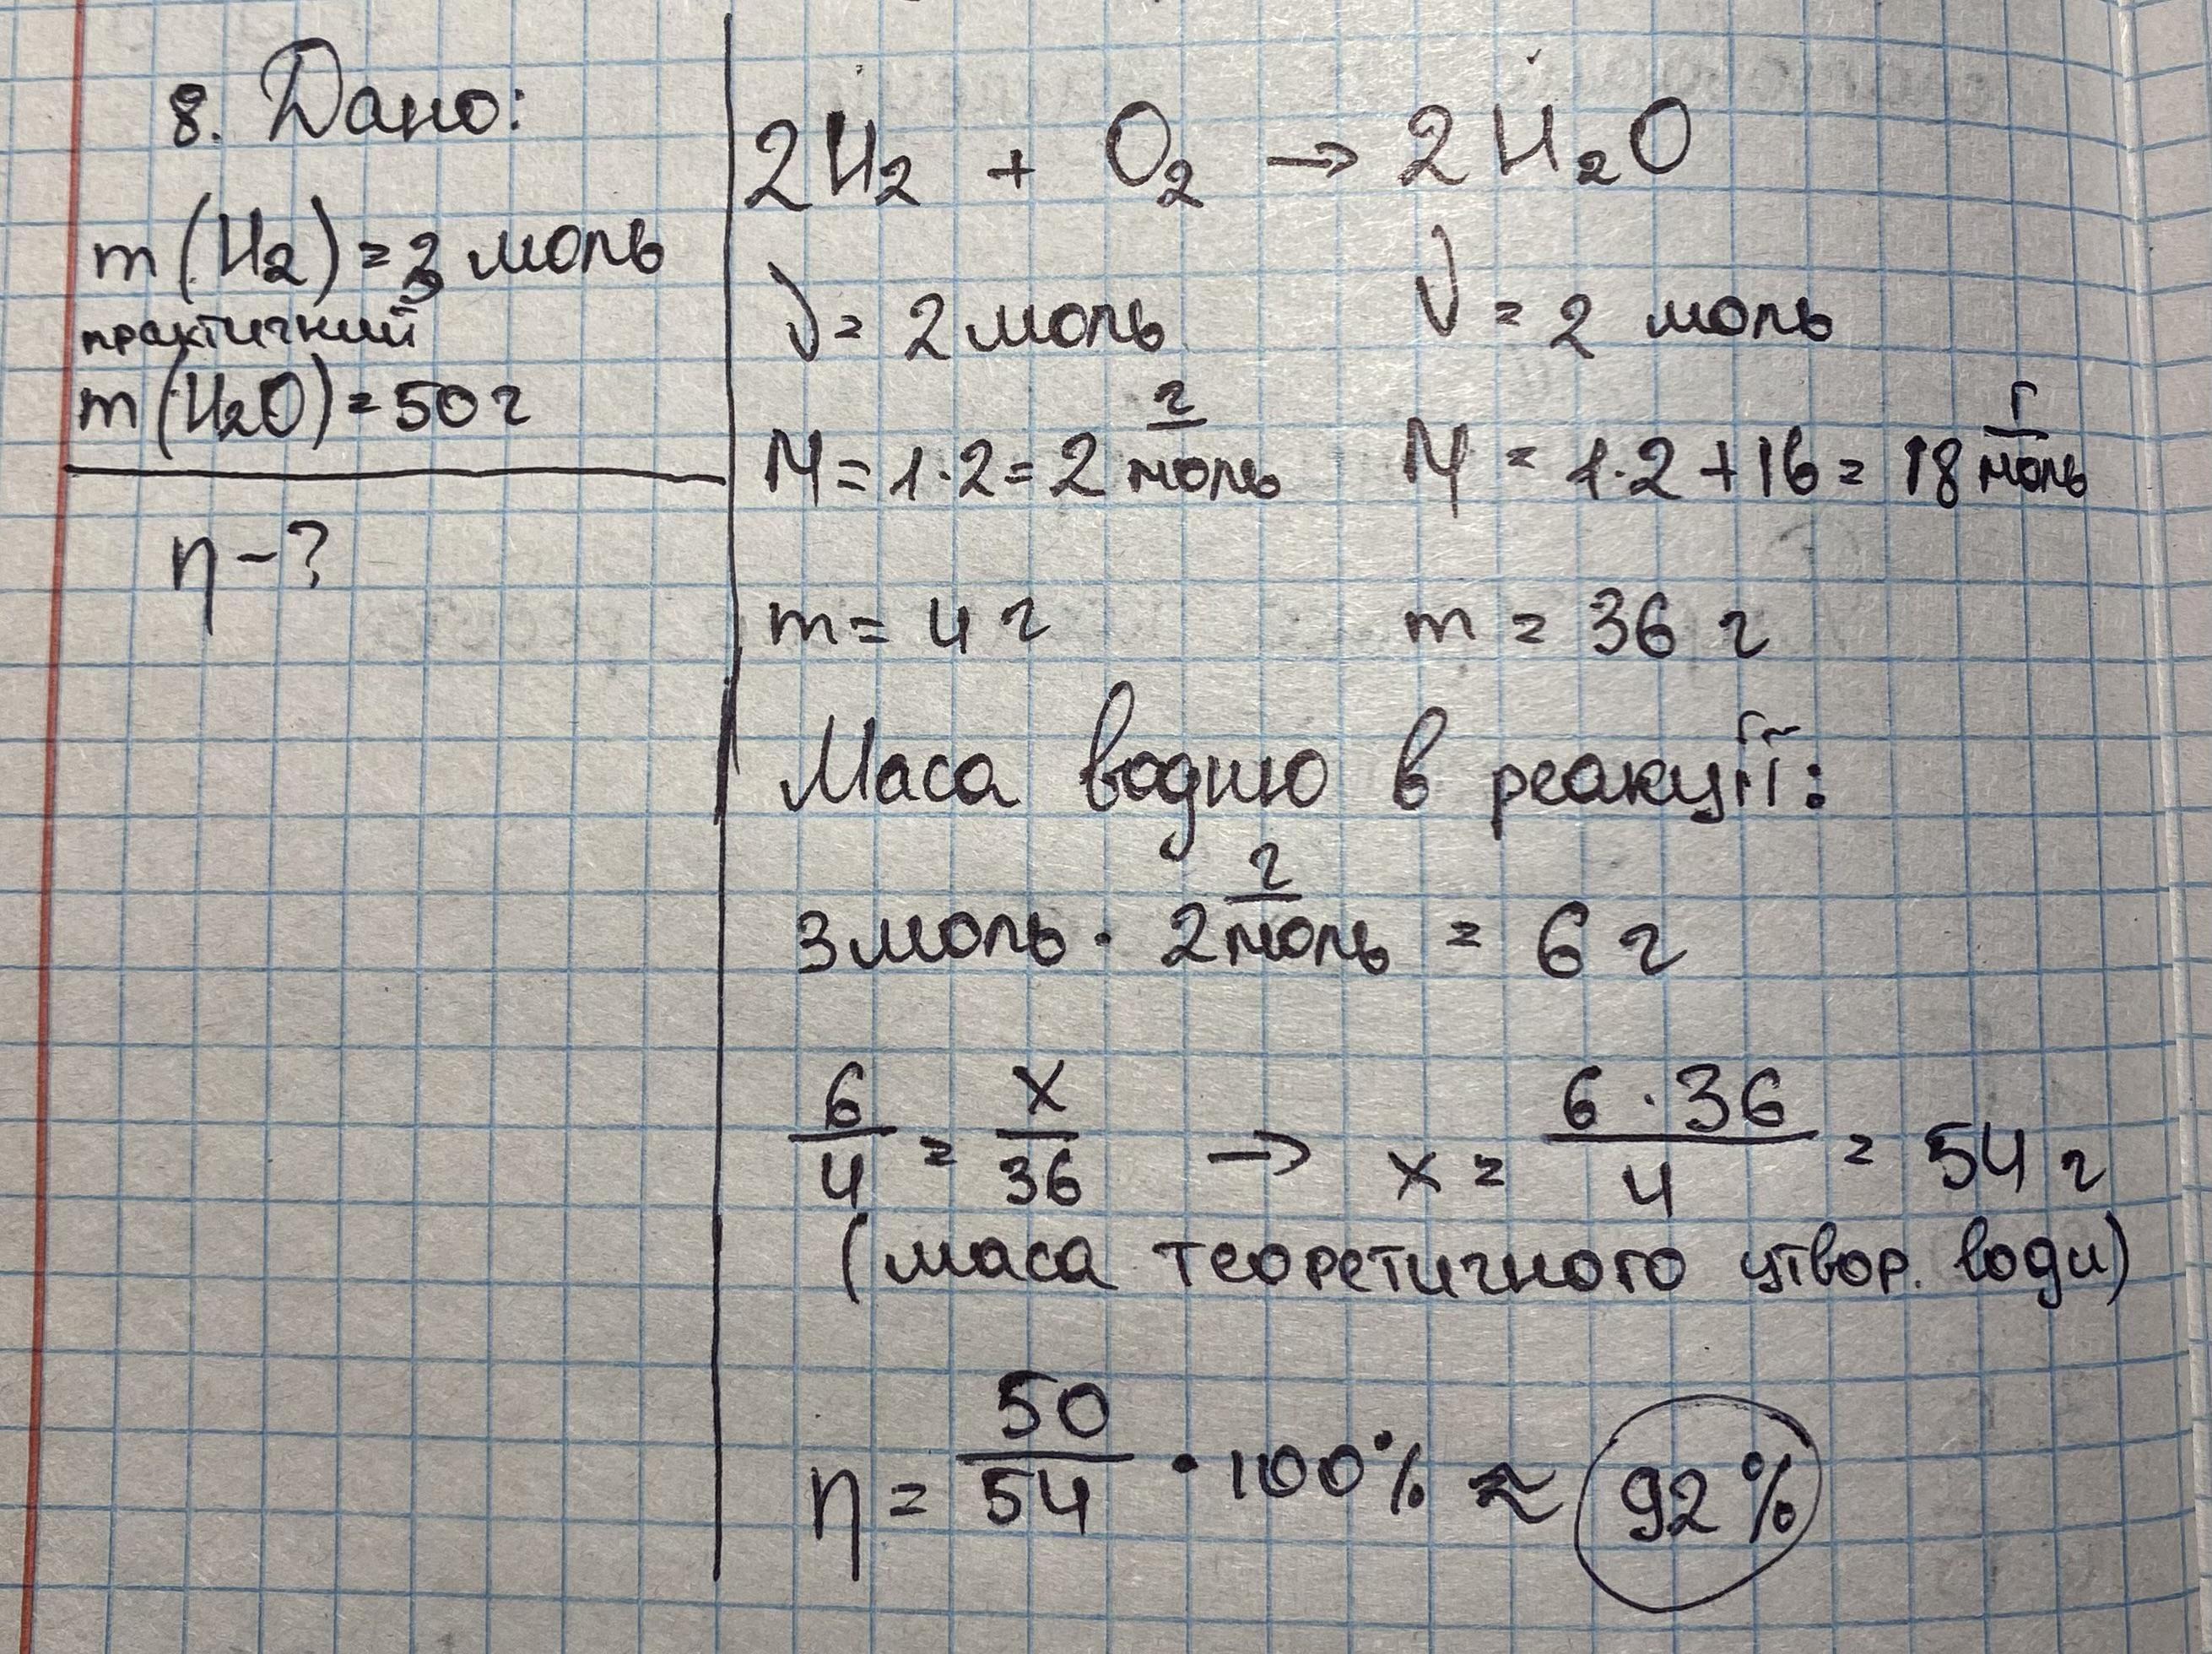 8. Дано:
m(H₂) = 3 моль
практичний
m(H₂O) = 50 г
η - ?
2H₂ + O₂ → 2H₂O
ν = 2 моль ν = 2 моль
M = 1·2 = 2 г/моль M = 1·2 + 16 = 18 г/моль
m = 4 г m = 36 г
Маса водню в реакції:
3 моль · 2 г/моль = 6 г
6/4 = x/36 → x = 6·36/4 = 54 г
(маса теоретичного утвор. води)
η = 50/54 · 100% ≈ 92%